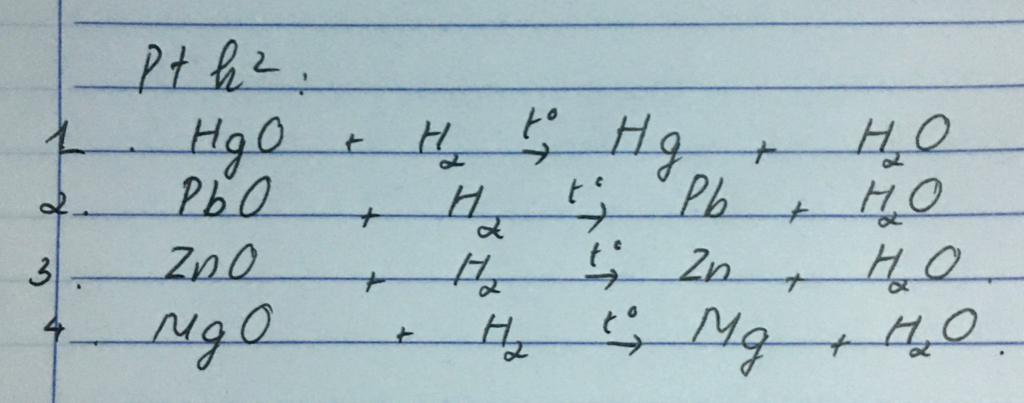 Pt h²:
1. HgO + H₂ t°→ Hg + H₂O
2. PbO + H₂ t°→ Pb + H₂O
3. ZnO + H₂ t°→ Zn + H₂O.
4. MgO + H₂ t°→ Mg + H₂O.